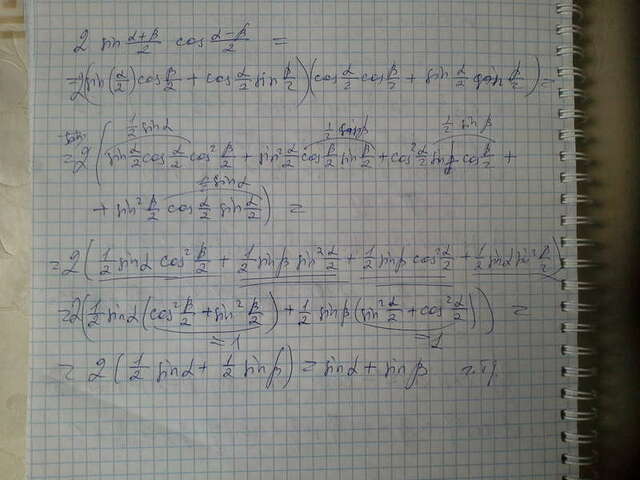 2 sin (α+β)/2 cos (α-β)/2 =
=2(sin(α/2)cos β/2 + cos α/2 sin β/2)(cos α/2 cos β/2 + sin α/2 sin β/2)=
1/2 sinα 1/2 sinβ 1/2 sinβ
=2(sin α/2 cos α/2 cos² β/2 + sin² α/2 cos β/2 sin β/2 + cos² α/2 sin β/2 cos β/2 +
1/2 sinα
+ sin² β/2 cos α/2 sin α/2) =
=2(1/2 sinα cos² β/2 + 1/2 sinβ sin² α/2 + 1/2 sinβ cos² α/2 + 1/2 sinα sin² β/2)
=2(1/2 sinα(cos² β/2 + sin² β/2) + 1/2 sinβ(sin² α/2 + cos² α/2)) =
=1 =1
= 2(1/2 sinα + 1/2 sinβ) = sinα + sinβ ч.т.д.